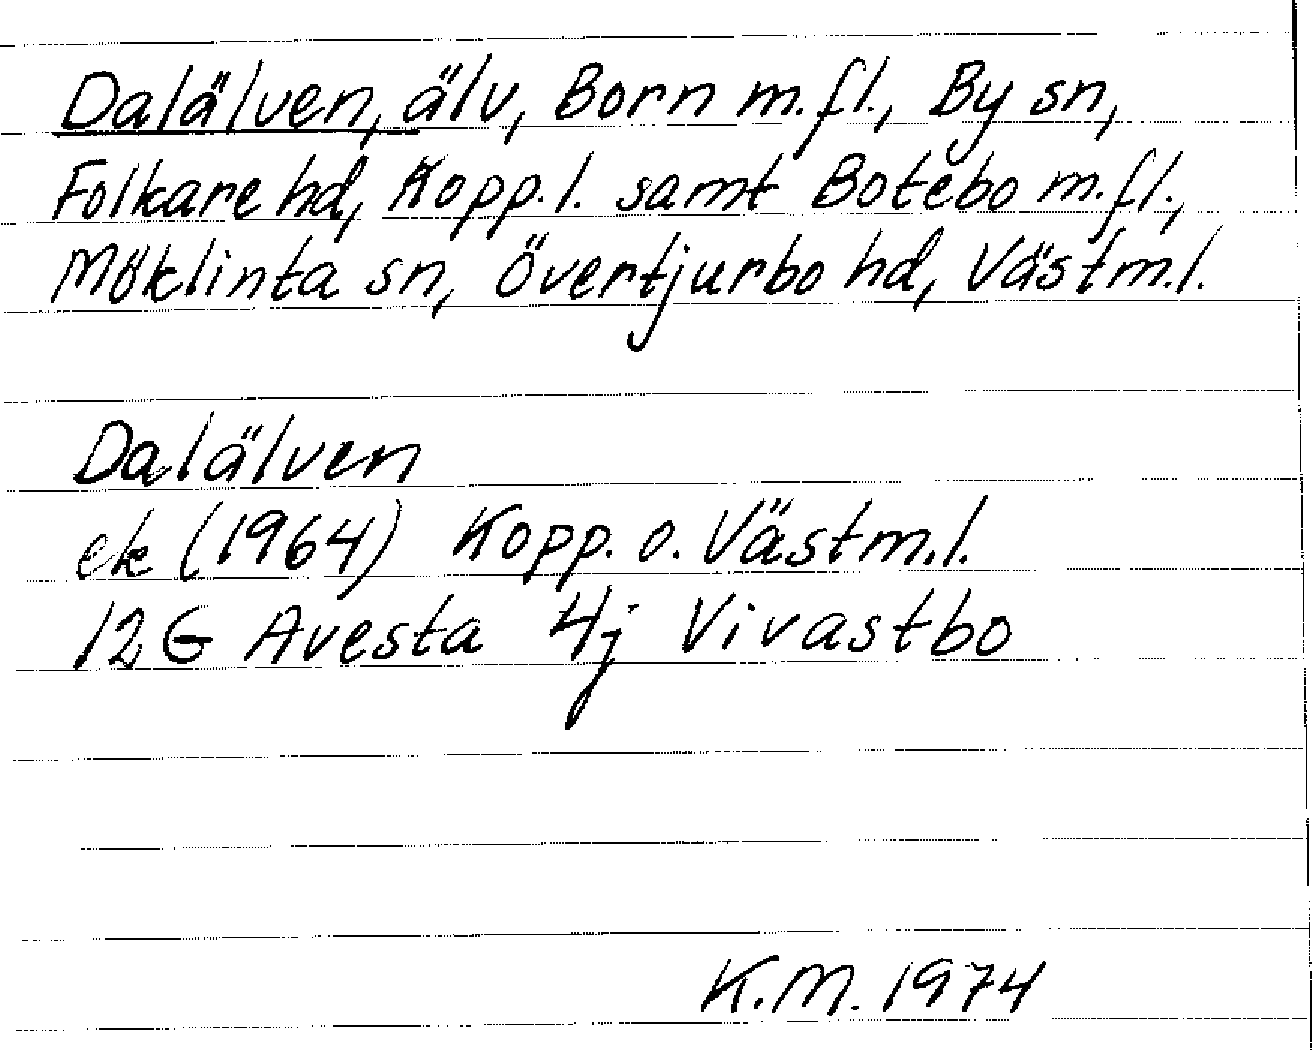 Dalälven, älv, Born m.fl., By sn,
Folkare hd, Kopp.l. samt Botebo m.fl.,
Möklinta sn, Övertjurbo hd, Västm.l.
Dalälven
ek (1964) Kopp. o. Västm.l.
12G Avesta 4j Vivastbo
K.M. 1974